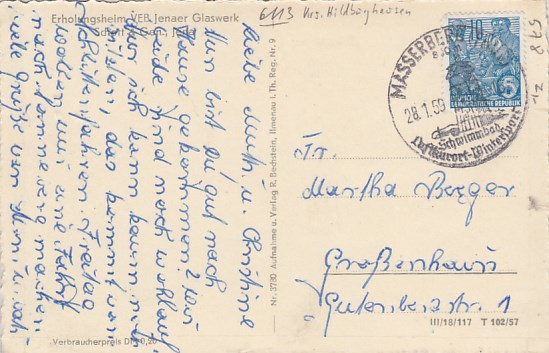 Erholungsheim VEB Jenaer Glaswerk
Schott & Gen., Jena
6113 Krs. Hildburghausen
Liebe Mutti u. Christine
Nun seid Ihr gut nach
Hause gekommen? Wir
beide sind noch wohlauf
nur ich kann kaum noch
sitzen, das kommt vom
Schlittenfahren. Freitag
wollen wir eine Fahrt
nach machen
viele Grüße von
Verbraucherpreis DM 0,20
Nr. 3780 Aufnahme u. Verlag R. Bechstein, Ilmenau i. Th. Reg. Nr. 9
MASSERBERG
28.1.59
Schwimmbad
Luftkurort-Wintersport
DEUTSCHE DEMOKRATISCHE REPUBLIK
Fr.
Martha Berger
Großenhain
Gutenbergstr. 1
III/18/117 T 102/57